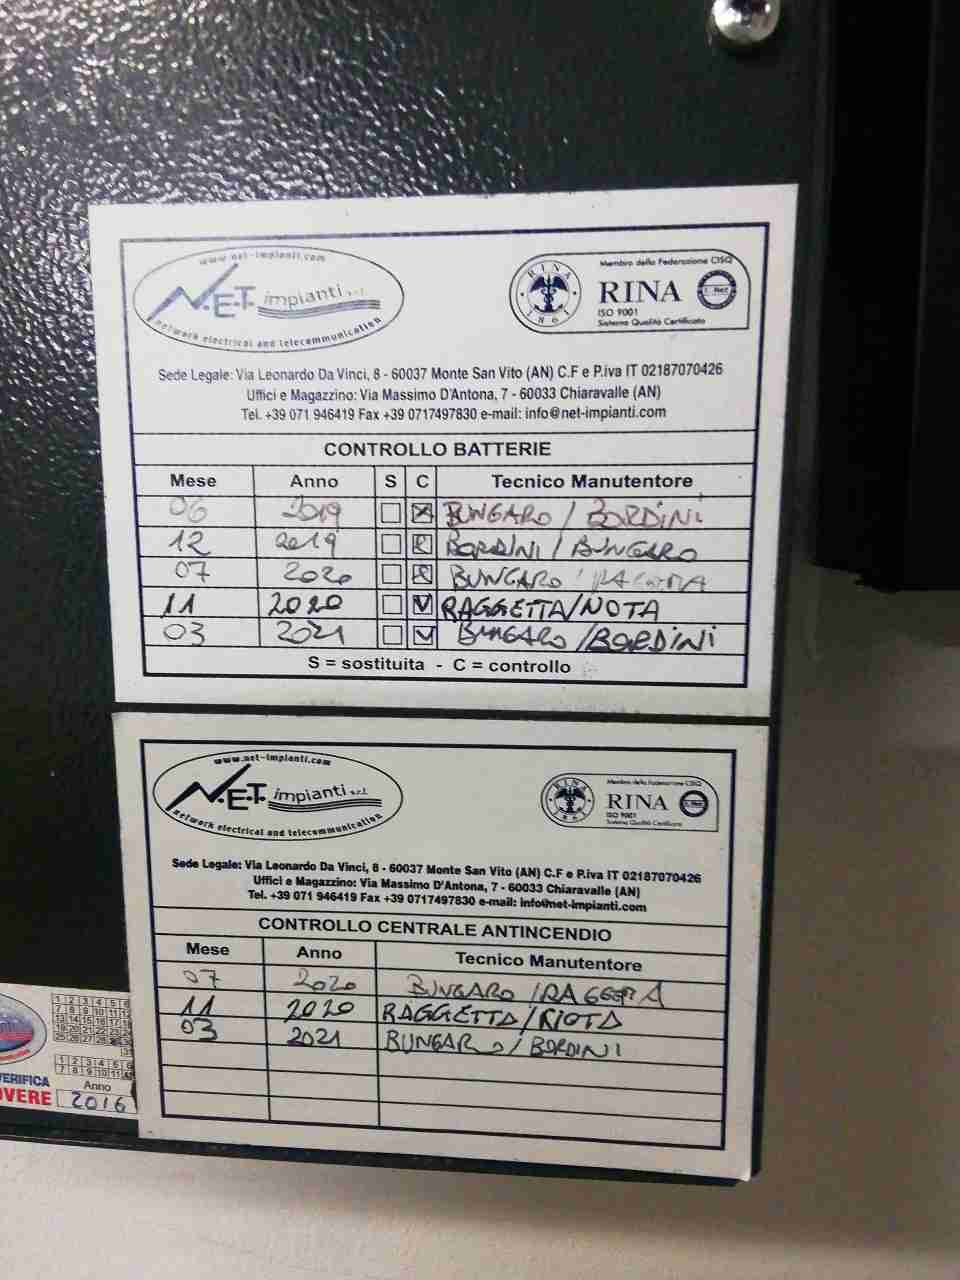 www.net-impianti.com
N.E.T. impianti s.r.l.
network electrical and telecommunication
RINA
1861
Membro della Federazione CISQ
RINA
ISO 9001
Sistema Qualità Certificato
Sede Legale: Via Leonardo Da Vinci, 8 - 60037 Monte San Vito (AN) C.F e P.iva IT 02187070426
Uffici e Magazzino: Via Massimo D'Antona, 7 - 60033 Chiaravalle (AN)
Tel. +39 071 946419 Fax +39 0717497830 e-mail: info@net-impianti.com
CONTROLLO BATTERIE
Mese Anno S C Tecnico Manutentore
06 2019 BUNGARO / BORDINI
12 2019 BORDINI / BUNGARO
07 2020 BUNGARO
11 2020 RAGGETTA/NOTA
03 2021 BUNGARO /BORDINI
S = sostituita - C = controllo
www.net-impianti.com
N.E.T. impianti s.r.l.
network electrical and telecommunication
RINA
1861
Membro della Federazione CISQ
RINA
ISO 9001
Sistema Qualità Certificato
Sede Legale: Via Leonardo Da Vinci, 8 - 60037 Monte San Vito (AN) C.F e P.iva IT 02187070426
Uffici e Magazzino: Via Massimo D'Antona, 7 - 60033 Chiaravalle (AN)
Tel. +39 071 946419 Fax +39 0717497830 e-mail: info@net-impianti.com
CONTROLLO CENTRALE ANTINCENDIO
Mese Anno Tecnico Manutentore
07 2020 BUNGARO /
11 2020 RAGGETTA/
03 2021 BUNGARO / BORDINI
VERIFICA
Anno
2016